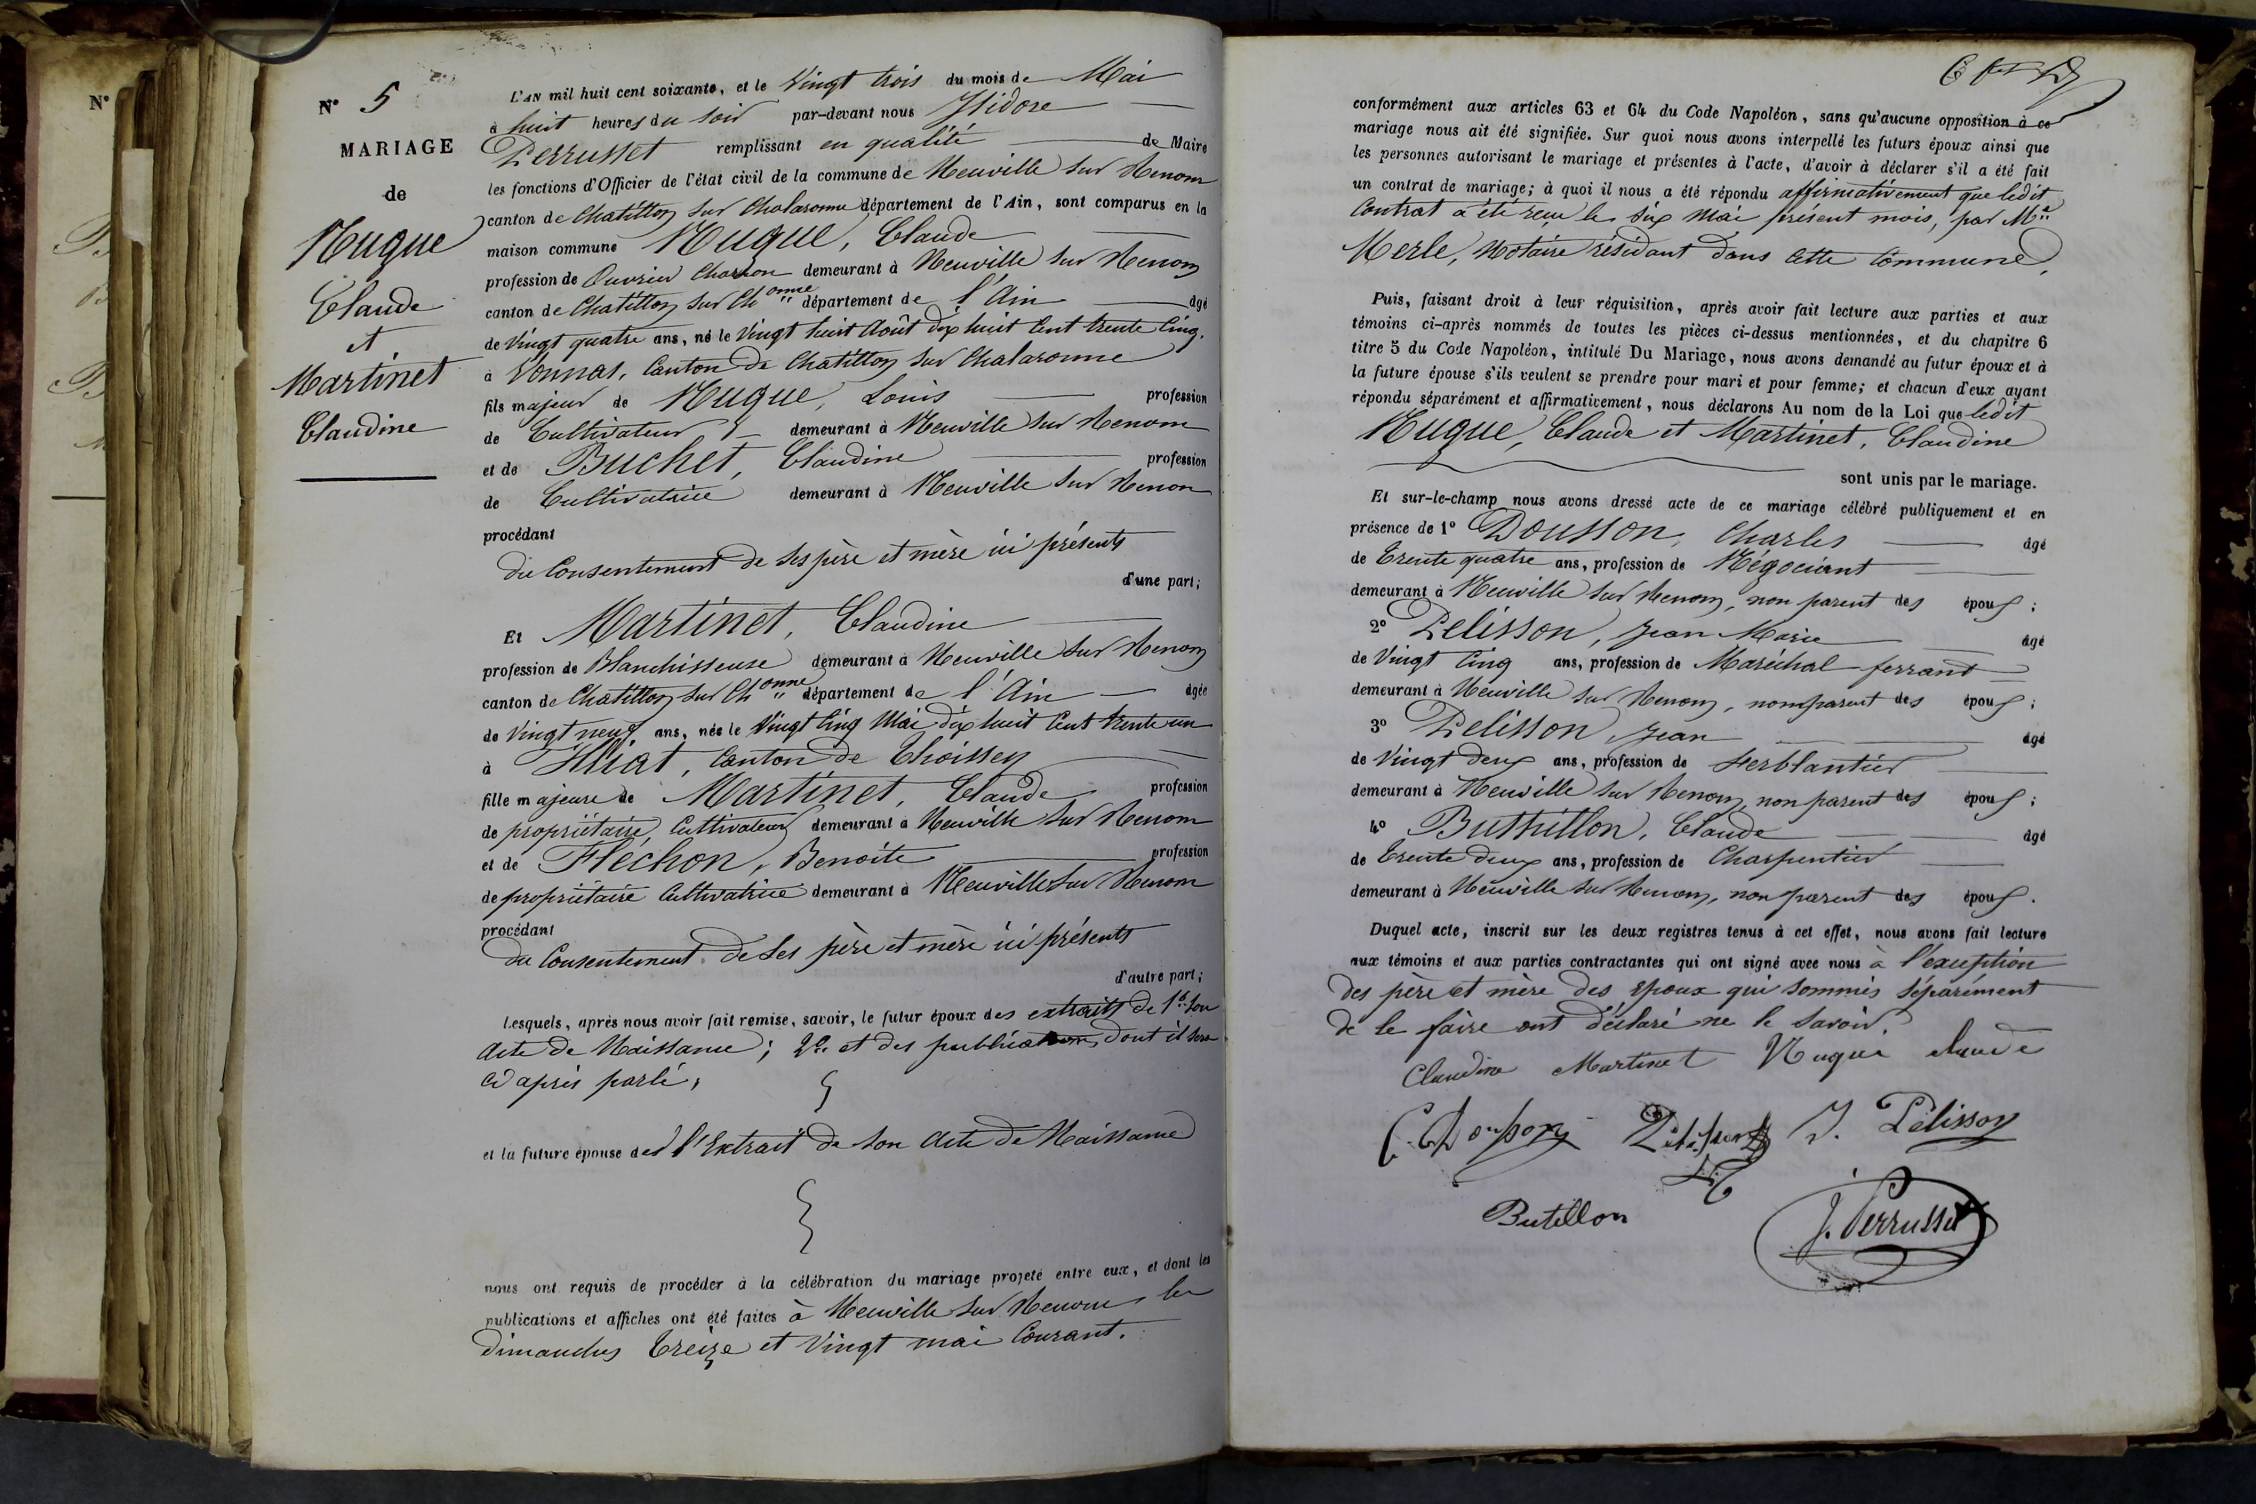 N° 5
MARIAGE
de
Nugue
Claude
et
Martinet
Claudine
L'AN mil huit cent soixante, et le Vingt trois du mois de Mai
à huit heures du soir par-devant nous Isidore
Perrusset remplissant en qualité de Maire
les fonctions d'Officier de l'état civil de la commune de Neuville sur Renom
canton de Chatillon sur Chalaronne département de l'Ain, sont comparus en la
maison commune Nugue, Claude
profession de Ouvrier Charron demeurant à Neuville sur Renom
canton de Chatillon sur Chonne département de l'Ain âgé
de Vingt quatre ans, né le Vingt huit Août dix huit Cent trente Cinq.
à Vonnas, Canton de Chatillon sur Chalaronne
fils majeur de Nugue, Louis profession
de Cultivateur demeurant à Neuville sur Renom
et de Buchet, Claudine profession
de Cultivatrice demeurant à Neuville sur Renom
procédant
du Consentement de ses père et mère ici présents
d'une part;
Et Martinet, Claudine
profession de Blanchisseuse demeurant à Neuville sur Renom
canton de Chatillon sur Chonne département de l'Ain âgée
de Vingt neuf ans, née le Vingt Cinq Mai dix huit Cent trente un
à Illiat, Canton de Thoissey
fille majeure de Martinet, Claude profession
de propriétaire Cultivateur demeurant à Neuville sur Renom
et de Fléchon, Benoite profession
de propriétaire Cultivatrice demeurant à Neuville sur Renom
procédant
du Consentement de ses père et mère ici présents
d'autre part;
Lesquels, après nous avoir fait remise, savoir, le futur époux des extraits de 1° son
Acte de Naissance; 2° et des publications dont il sera
ci après parlé,
et la future épouse de l'Extrait de son Acte de Naissance
nous ont requis de procéder à la célébration du mariage projeté entre eux, et dont les
publications et affiches ont été faites à Neuville sur Renom les
dimanches treize et Vingt mai Courant.
conformément aux articles 63 et 64 du Code Napoléon, sans qu'aucune opposition à ce
mariage nous ait été signifiée. Sur quoi nous avons interpellé les futurs époux ainsi que
les personnes autorisant le mariage et présentes à l'acte, d'avoir à déclarer s'il a été fait
un contrat de mariage; à quoi il nous a été répondu affirmativement que ledit
Contrat a été reçu le six Mai présent mois, par Me
Merle, Notaire résidant dans cette Commune,
Puis, faisant droit à leur réquisition, après avoir fait lecture aux parties et aux
témoins ci-après nommés de toutes les pièces ci-dessus mentionnées, et du chapitre 6
titre 5 du Code Napoléon, intitulé Du Mariage, nous avons demandé au futur époux et à
la future épouse s'ils veulent se prendre pour mari et pour femme; et chacun d'eux ayant
répondu séparément et affirmativement, nous déclarons Au nom de la Loi que ledit
Nugue, Claude et Martinet, Claudine
sont unis par le mariage.
Et sur-le-champ nous avons dressé acte de ce mariage célébré publiquement et en
présence de 1° Dousson, Charles âgé
de Trente quatre ans, profession de Négociant
demeurant à Neuville sur Renom, non parent des époux;
2° Pelisson, Jean Marie âgé
de Vingt Cinq ans, profession de Maréchal ferrant
demeurant à Neuville sur Renom, non parent des époux;
3° Pelisson, Jean âgé
de Vingt deux ans, profession de Ferblantier
demeurant à Neuville sur Renom, non parent des époux;
4° Buthillon, Claude âgé
de Trente deux ans, profession de Charpentier
demeurant à Neuville sur Renom, non parent des époux.
Duquel acte, inscrit sur les deux registres tenus à cet effet, nous avons fait lecture
aux témoins et aux parties contractantes qui ont signé avec nous à l'exception
des père et mère des époux qui sommés séparément
de le faire ont déclaré ne le savoir.
Claudine Martinet Nugue claude
C. Dousson Pelisson J. Pélisson
Butillon J. Perrusset